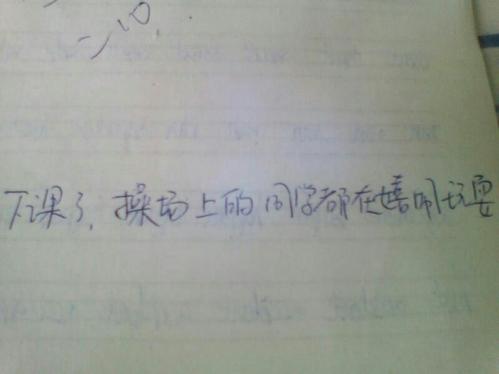 下课了，操场上的同学都在嬉闹玩耍